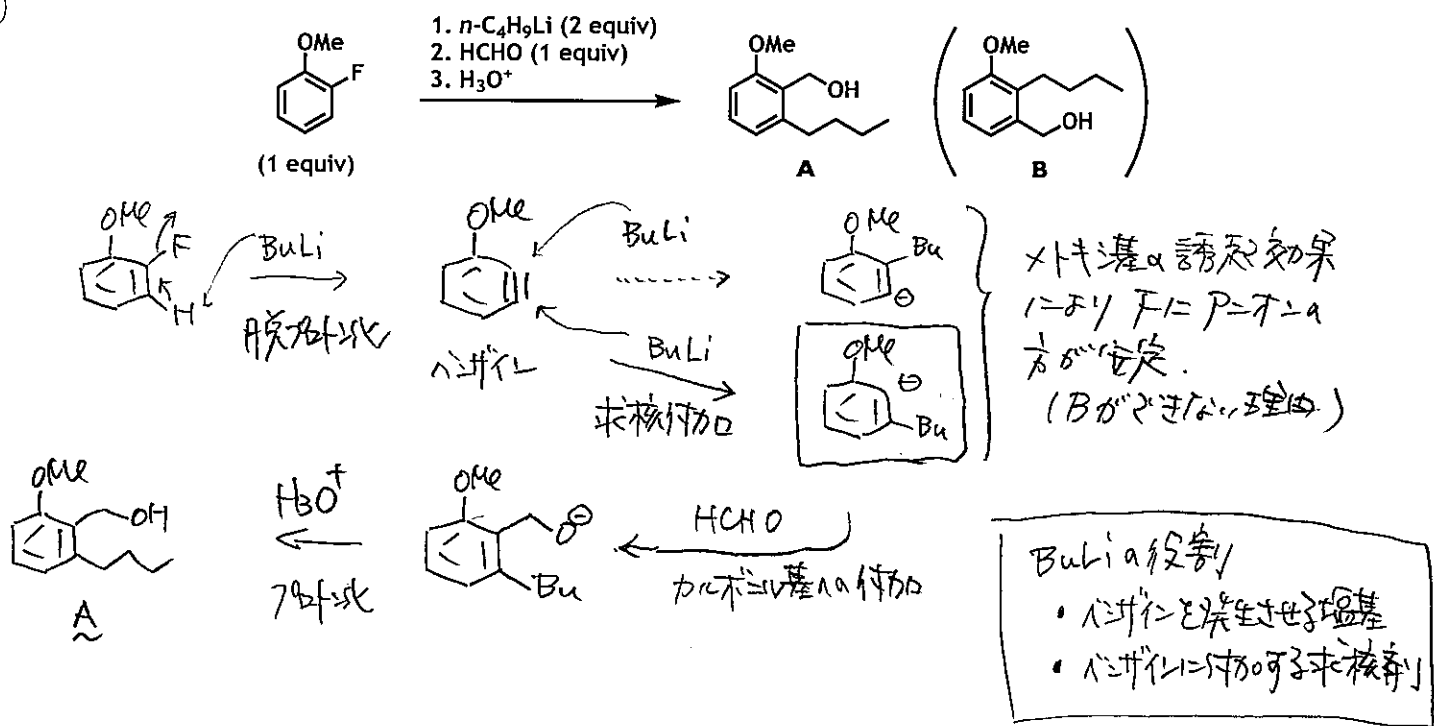 1. n-C₄H₉Li (2 equiv)
2. HCHO (1 equiv)
3. H₃O⁺
OMe
F
(1 equiv)
OMe
OH
A
OMe
OH
B
OMe
F
H
BuLi
脱プロトン化
OMe
ベンザイン
BuLi
BuLi
求核付加
OMe
Bu
⊖
OMe
⊖
Bu
メトキシ基の誘起効果
により 下にアニオンの
方が安定.
(Bができない理由)
OMe
OH
A
H₃O⁺
プロトン化
OMe
O⊖
Bu
HCHO
カルボニル基への付加
BuLiの役割
・ベンザインを発生させる塩基
・ベンザインに付加する求核剤